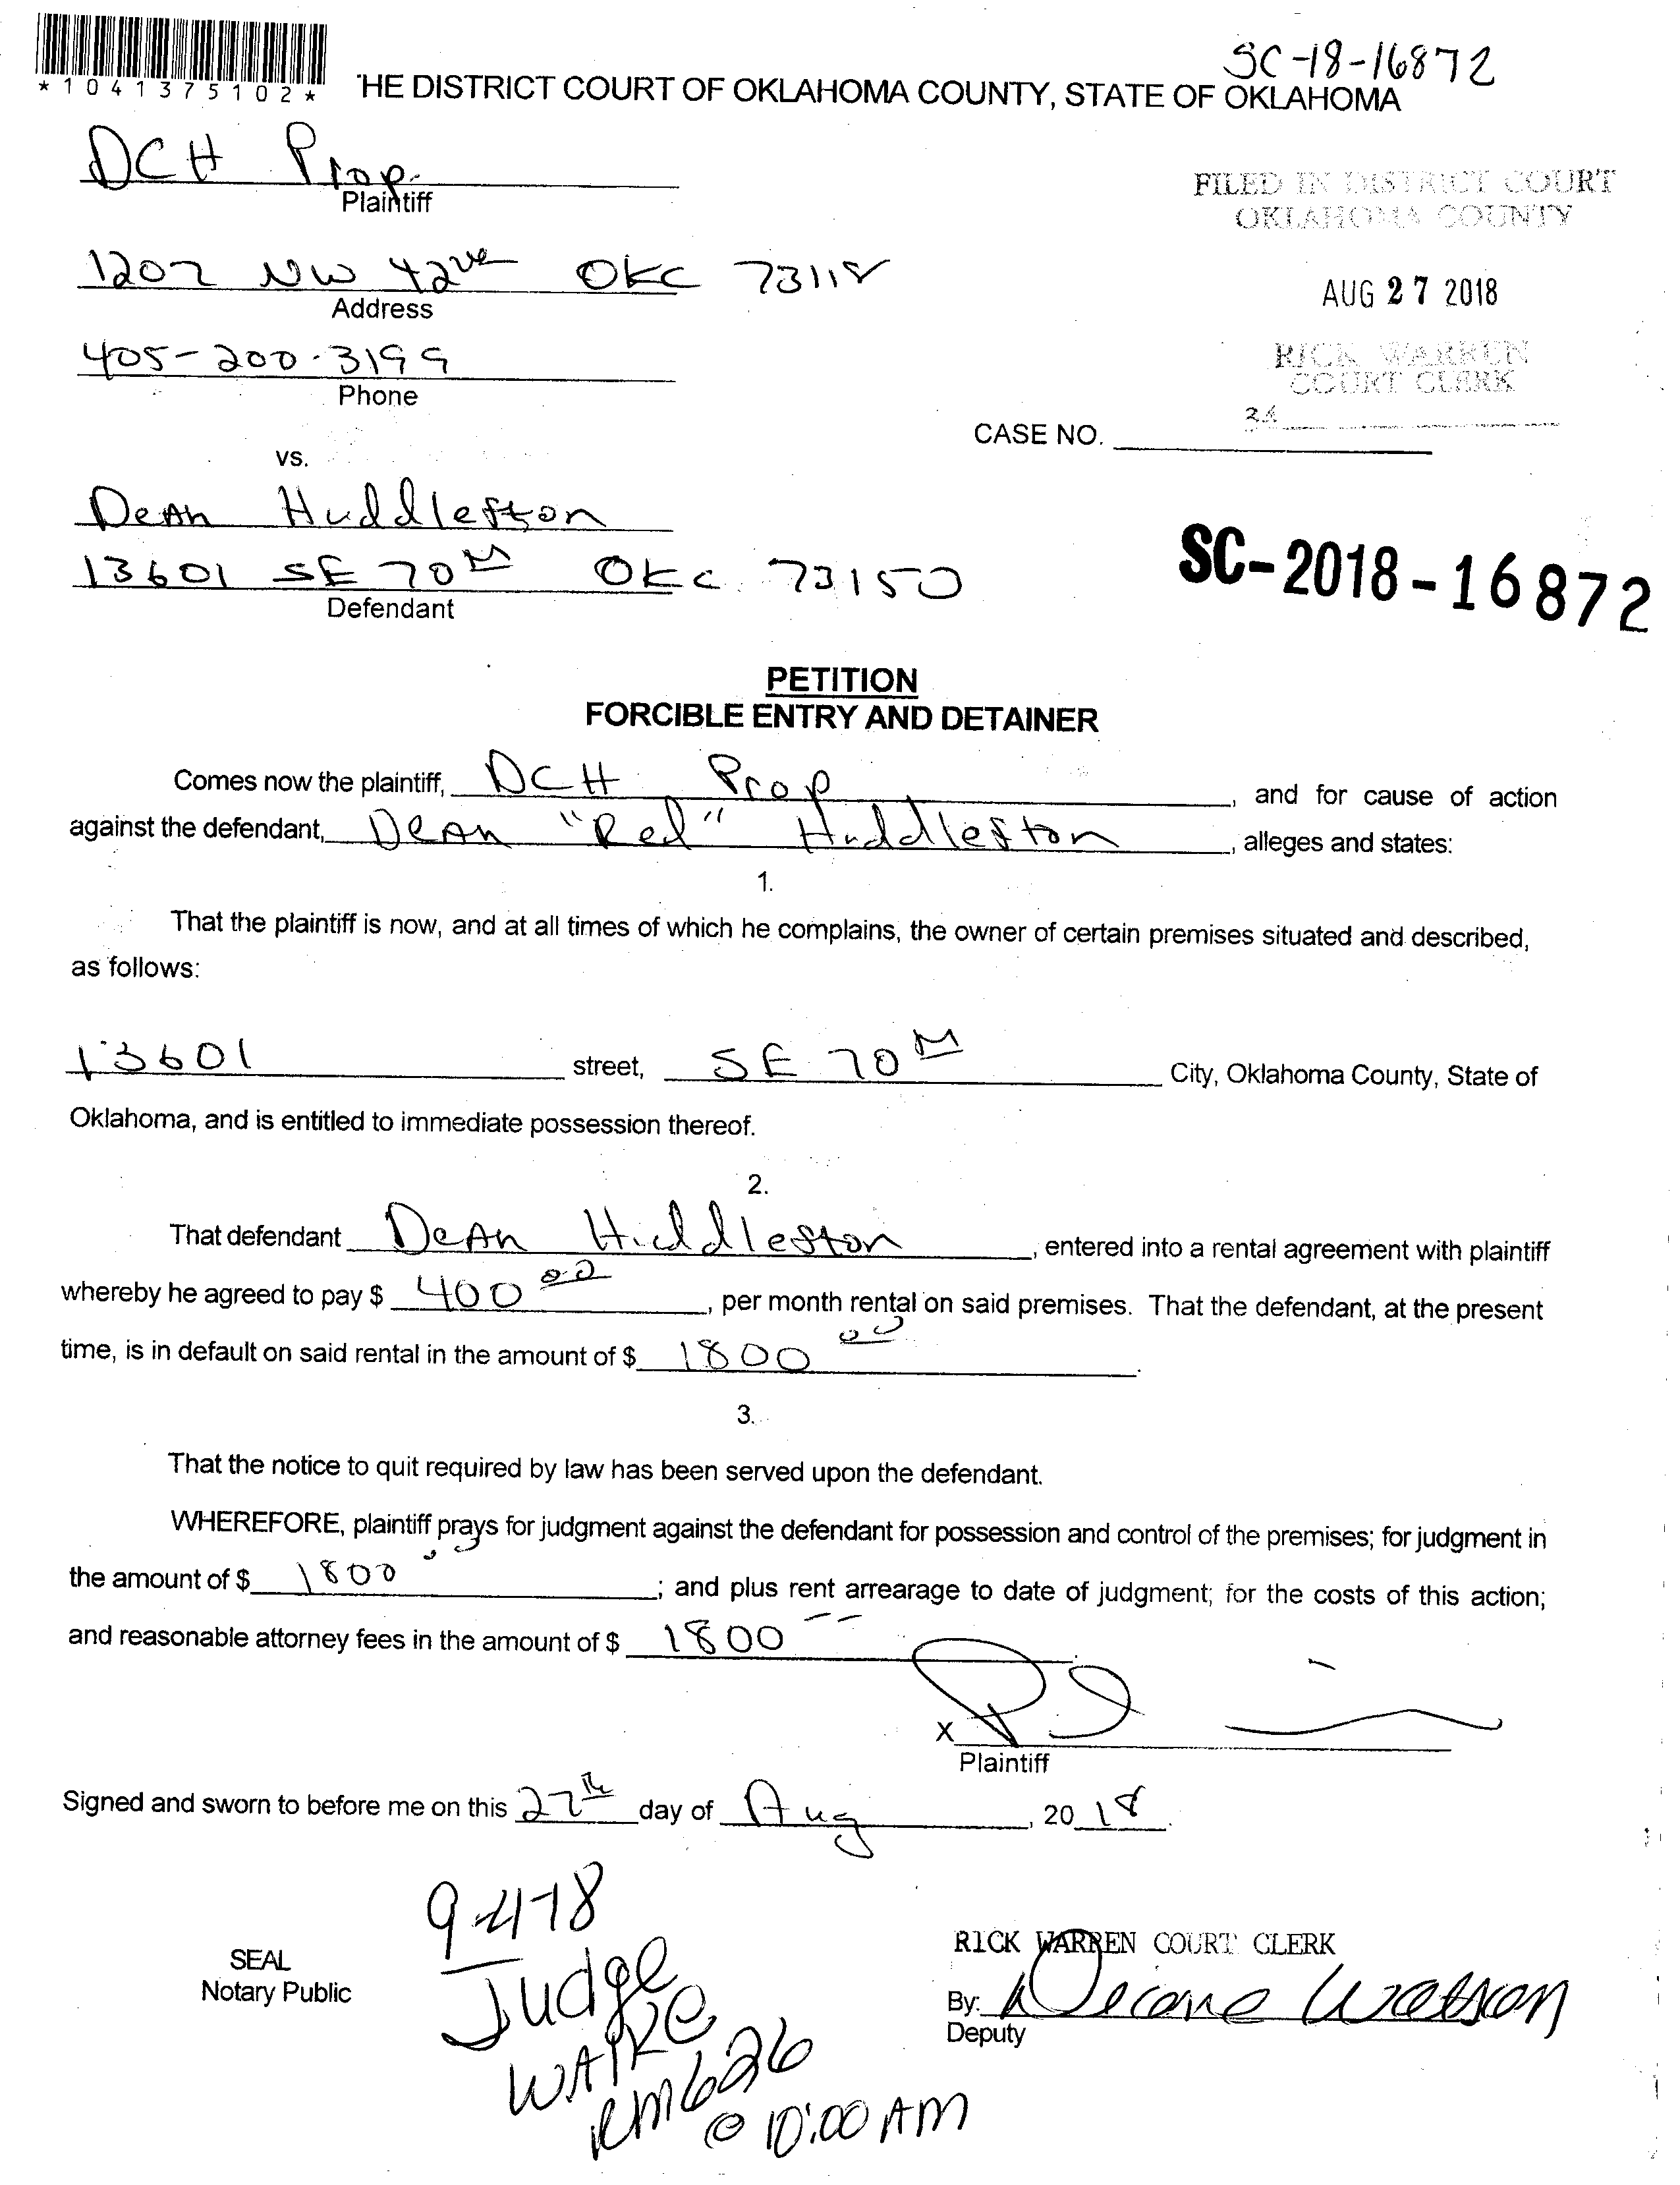 SC-18-16872
*1041375102*
'HE DISTRICT COURT OF OKLAHOMA COUNTY, STATE OF OKLAHOMA
DCH Prop.
Plaintiff
FILED IN DISTRICT COURT
OKLAHOMA COUNTY
1207 NW 42nd OKC 73118
Address
AUG 27 2018
405-200-3199
Phone
RICK WARREN
COURT CLERK
34
CASE NO.
vs.
Dean Huddleston
13601 SE 70th OKC 73150
Defendant
SC-2018-16872
PETITION
FORCIBLE ENTRY AND DETAINER
Comes now the plaintiff, DCH Prop, and for cause of action
against the defendant, Dean "Red" Huddleston, alleges and states:
1.
That the plaintiff is now, and at all times of which he complains, the owner of certain premises situated and described,
as follows:
13601 street, SE 70th City, Oklahoma County, State of
Oklahoma, and is entitled to immediate possession thereof.
2.
That defendant Dean Huddleston, entered into a rental agreement with plaintiff
whereby he agreed to pay $ 400 00, per month rental on said premises. That the defendant, at the present
time, is in default on said rental in the amount of $ 1800 00.
3.
That the notice to quit required by law has been served upon the defendant.
WHEREFORE, plaintiff prays for judgment against the defendant for possession and control of the premises; for judgment in
the amount of $ 1800 00; and plus rent arrearage to date of judgment; for the costs of this action;
and reasonable attorney fees in the amount of $ 1800 --.
X
Plaintiff
Signed and sworn to before me on this 27th day of Aug, 2018.
9-4-18
Judge
RICK WARREN COURT CLERK
SEAL
Notary Public
By: Deputy
RM 626
@ 10:00 AM